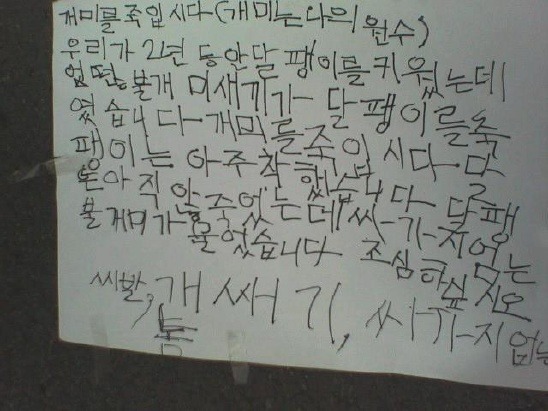 개미를죽입시다(개미는나의 원수)
우리가 2년 동안달팽이를키웠는데
었떤불개미새끼가 달팽이를죽
였습니다 개미를죽입시다. 달
팽이는 아주착했습니다 달팽
아직 안죽었는데 싸가지없는
불개미가 물었습니다 조심하싶시오
씨발, 개쌔기, 싸가지없는
놈